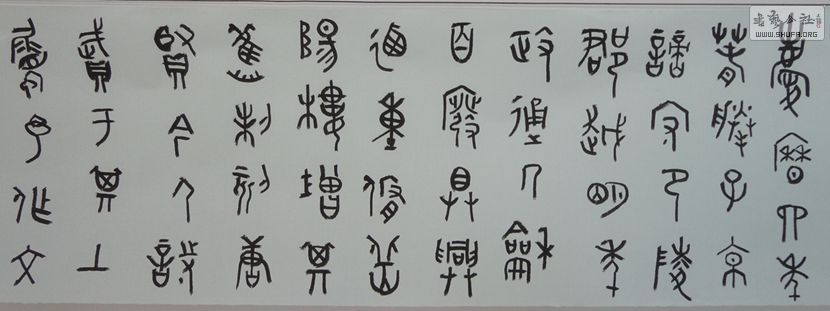 慶曆四年
春滕子京
謫守巴陵
郡越明年
政通人和
百廢具興
迺重修岳
陽樓增其
舊制刻唐
賢今人詩
賦于其上
屬予作文
書藝公社
WWW.SHUFA.ORG